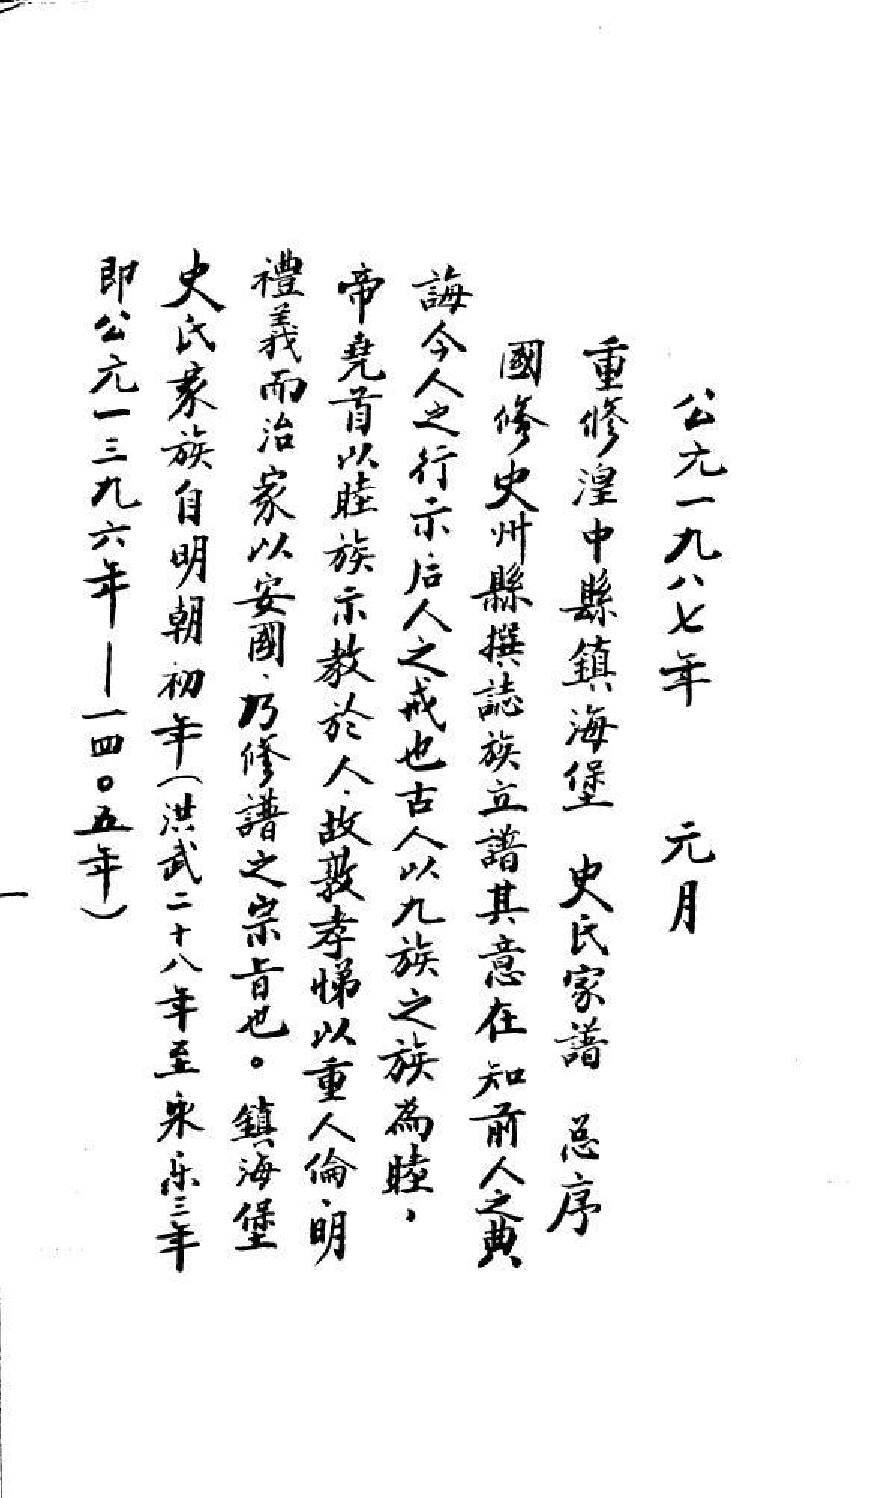 公元一九八七年　元月
重修湟中縣鎮海堡　史氏家譜　总序
國修史州縣撰誌族立譜其意在知前人之典
誨今人之行示后人之戒也古人以九族之族為睦，
帝堯首以睦族示教於人、故敦孝悌以重人倫、明
禮義而治家以安國、乃修譜之宗旨也。鎮海堡
史氏家族自明朝初年（洪武二十八年至永乐三年
即公元一三九六年—一四〇五年）
一